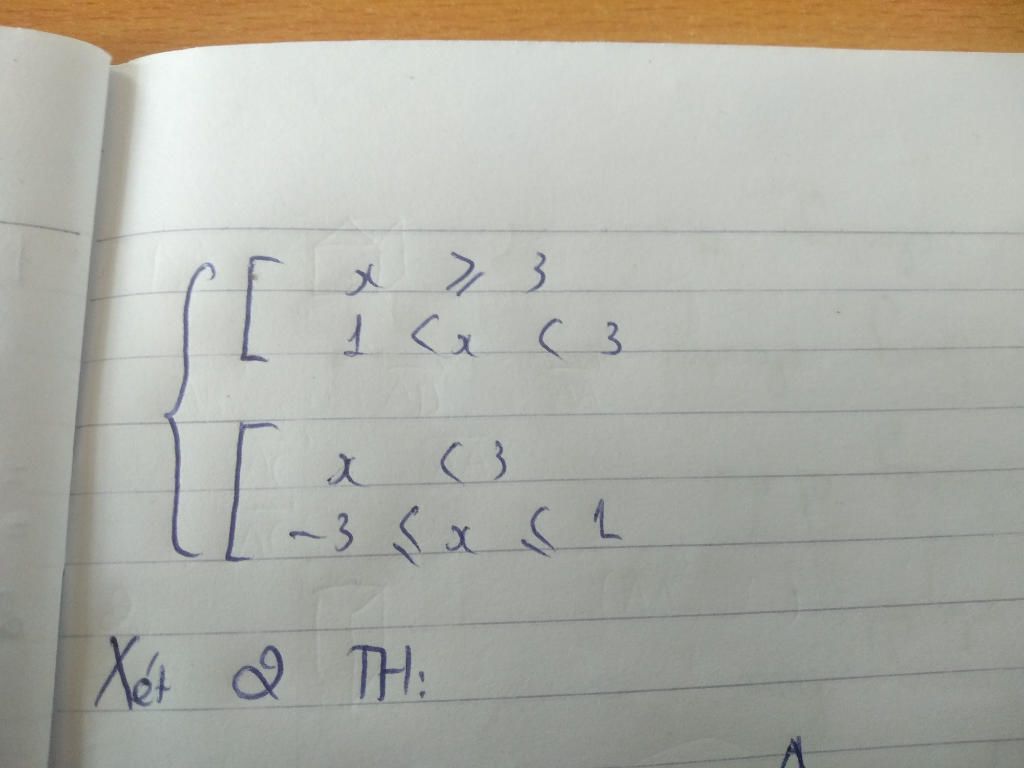 x ⩾ 3
1 < x < 3
x < 3
-3 ⩽ x ⩽ 1
Xét 2 TH: